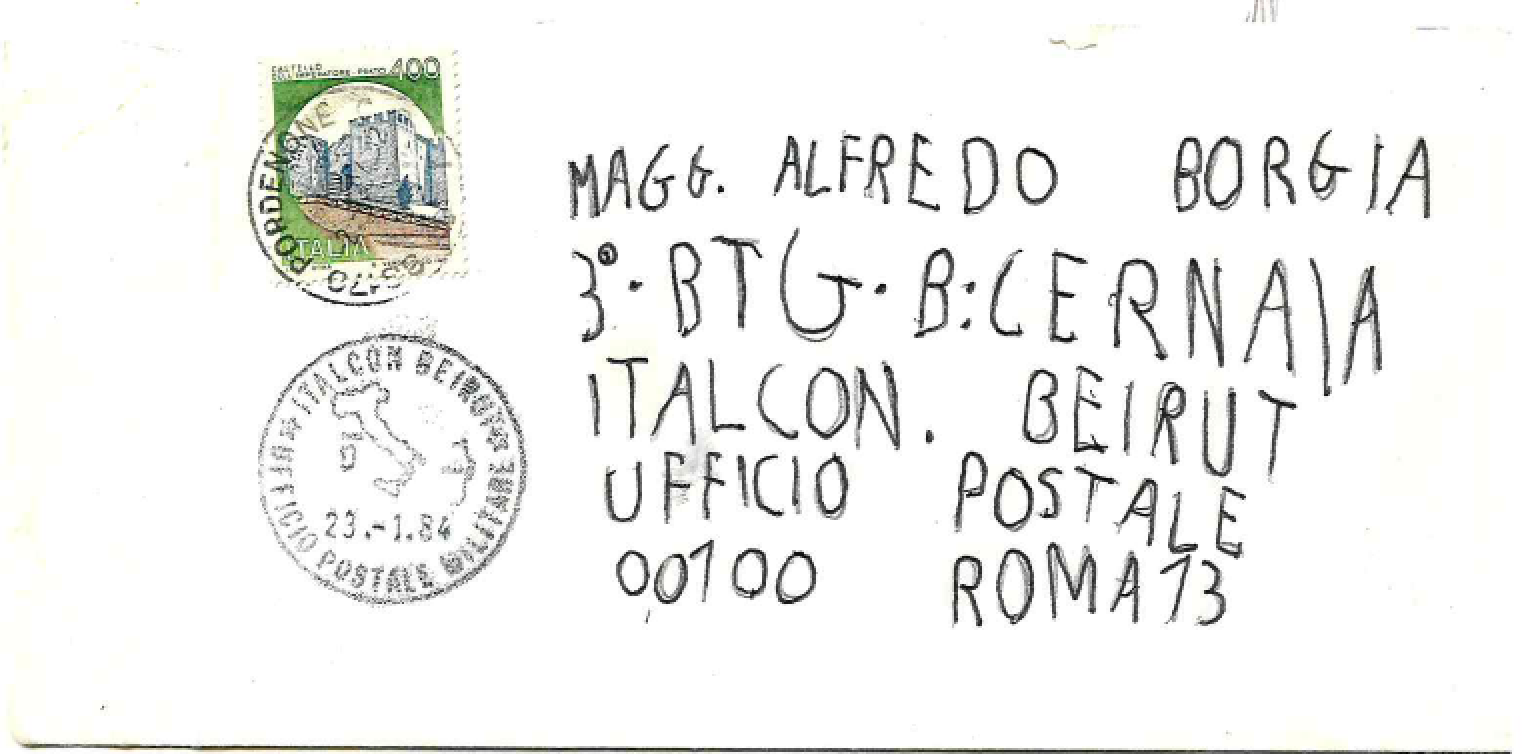 CASTELLO 400
DELL'IMPERATORE - PRATO
ITALIA
PORDENONE
ITALCON BEIRUT
23.-1.84
UFFICIO POSTALE MILITARE
MAGG. ALFREDO BORGIA
3º. BTG. B:CERNAIA
ITALCON. BEIRUT
UFFICIO POSTALE
00100 ROMA 13